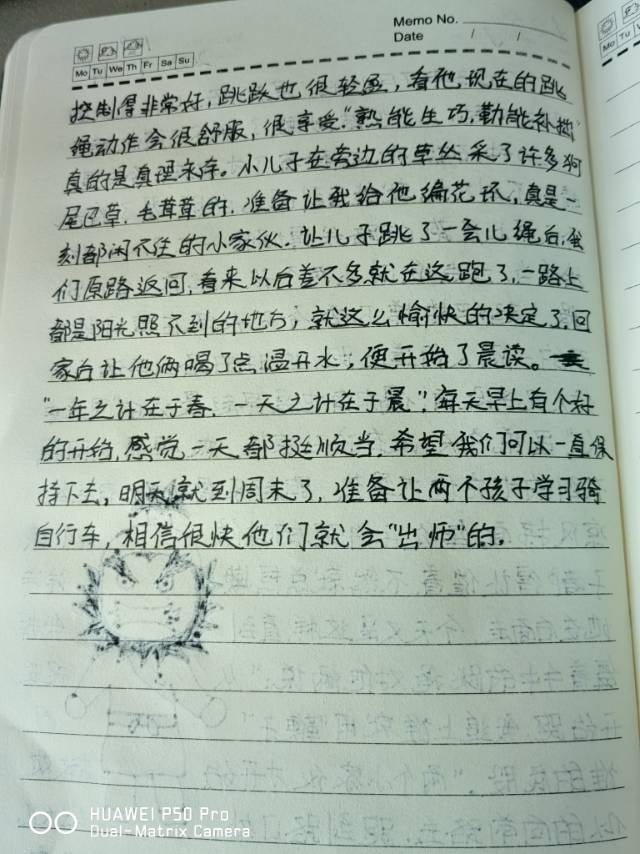 Memo No.
Date / /
Mo Tu We Th Fr Sa Su
控制得非常好，跳跃也很轻盈，看他现在的跳
绳动作会很舒服，很享受。“熟能生巧，勤能补拙”
真的是真理永存。小儿子在旁边的草丛采了许多狗
尾巴草，毛茸茸的，准备让我给他编花环，真是一
刻都闲不住的小家伙。让儿子跳了一会儿绳后，我
们原路返回，看来以后差不多就在这跑了，一路上
都是阳光照不到的地方，就这么愉快的决定了，回
家后让他俩喝了点温开水，便开始了晨读。
“一年之计在于春，一天之计在于晨”，每天早上有个好
的开始，感觉一天都挺顺当，希望我们可以一直保
持下去，明天就到周末了，准备让两个孩子学习骑
自行车，相信很快他们就会“出师”的。
HUAWEI P50 Pro
Dual-Matrix Camera